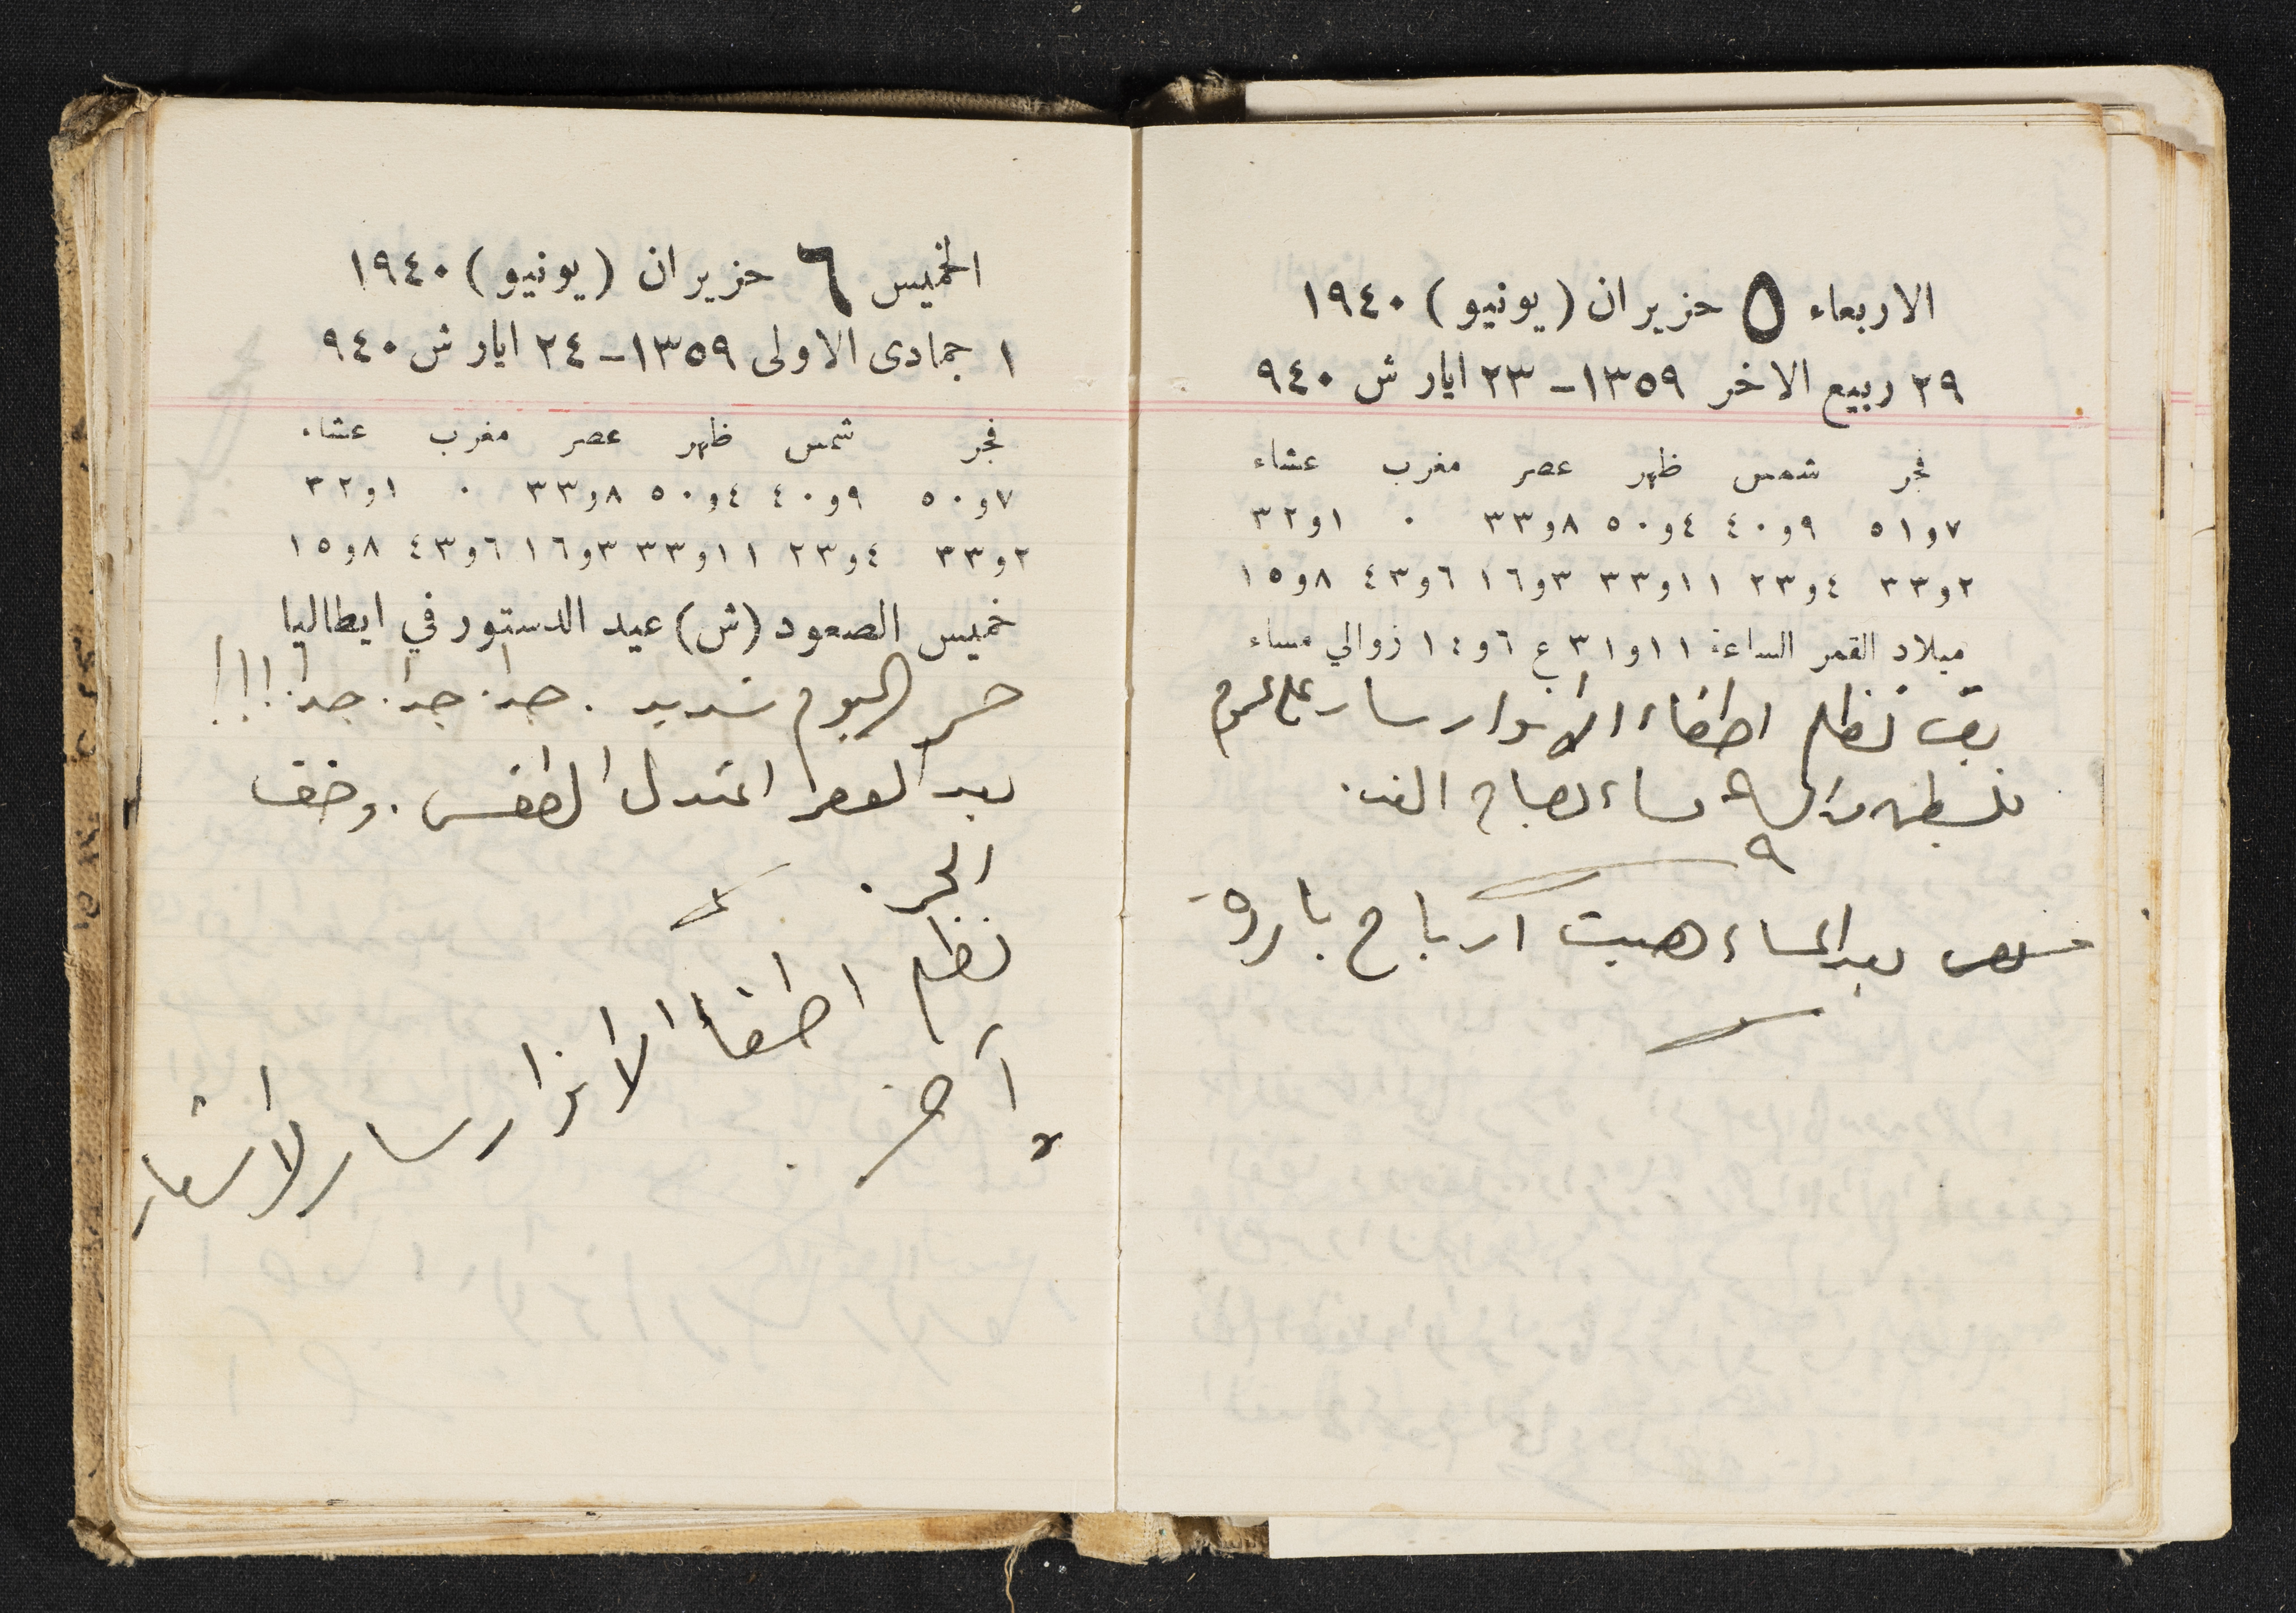 الاربعاء ٥ حزيران (يونيو) ١٩٤٠
٢٩ ربيع الاخر ١٣٥٩ – ٢٣ ايار ش ٩٤٠
فجر شمس ظهر عصر مغرب عشاء
٧و٥١ ٩و٤٠ ٤و٥٠ ٨و٣٣ ٠ ١و٣٢
٢و٣٣ ٤و٢٣ ١١و٣٣ ٣و١٦ ٦و٤٣ ٨و١٥
ميلاد القمر الساعة ١١و٣١ ع ٦و١٤ زوالي مساء
نظام اطفاء الانوار سار على عموم
فلسطين من الساعة ٩ مساء لصباح الغد.
بعد المساء هبت ارياح باردة
الخميس ٦ حزيران (يونيو) ١٩٤٠
١ جمادى الاولى ١٣٥٩ – ٢٤ ايار ش ٩٤٠
فجر شمس ظهر عصر مغرب عشاء
٧و٥٠ ٩و٤٠ ٤و٥٠ ٨و٣٣ ٠ ١و٣٢
٢و٣٣ ٤و٢٣ ١١و٣٣ ٣و١٦ ٦و٤٣ ٨و١٥
خميس الصعود (ش) عيد الدستور في ايطاليا
حر اليوم شديد. جدا. جدا. جدا. !!!
بعد العصر اعتدل الطقس. وخف
الحر.
نظام اطفاء الانوار سار لاشعار
آخر.